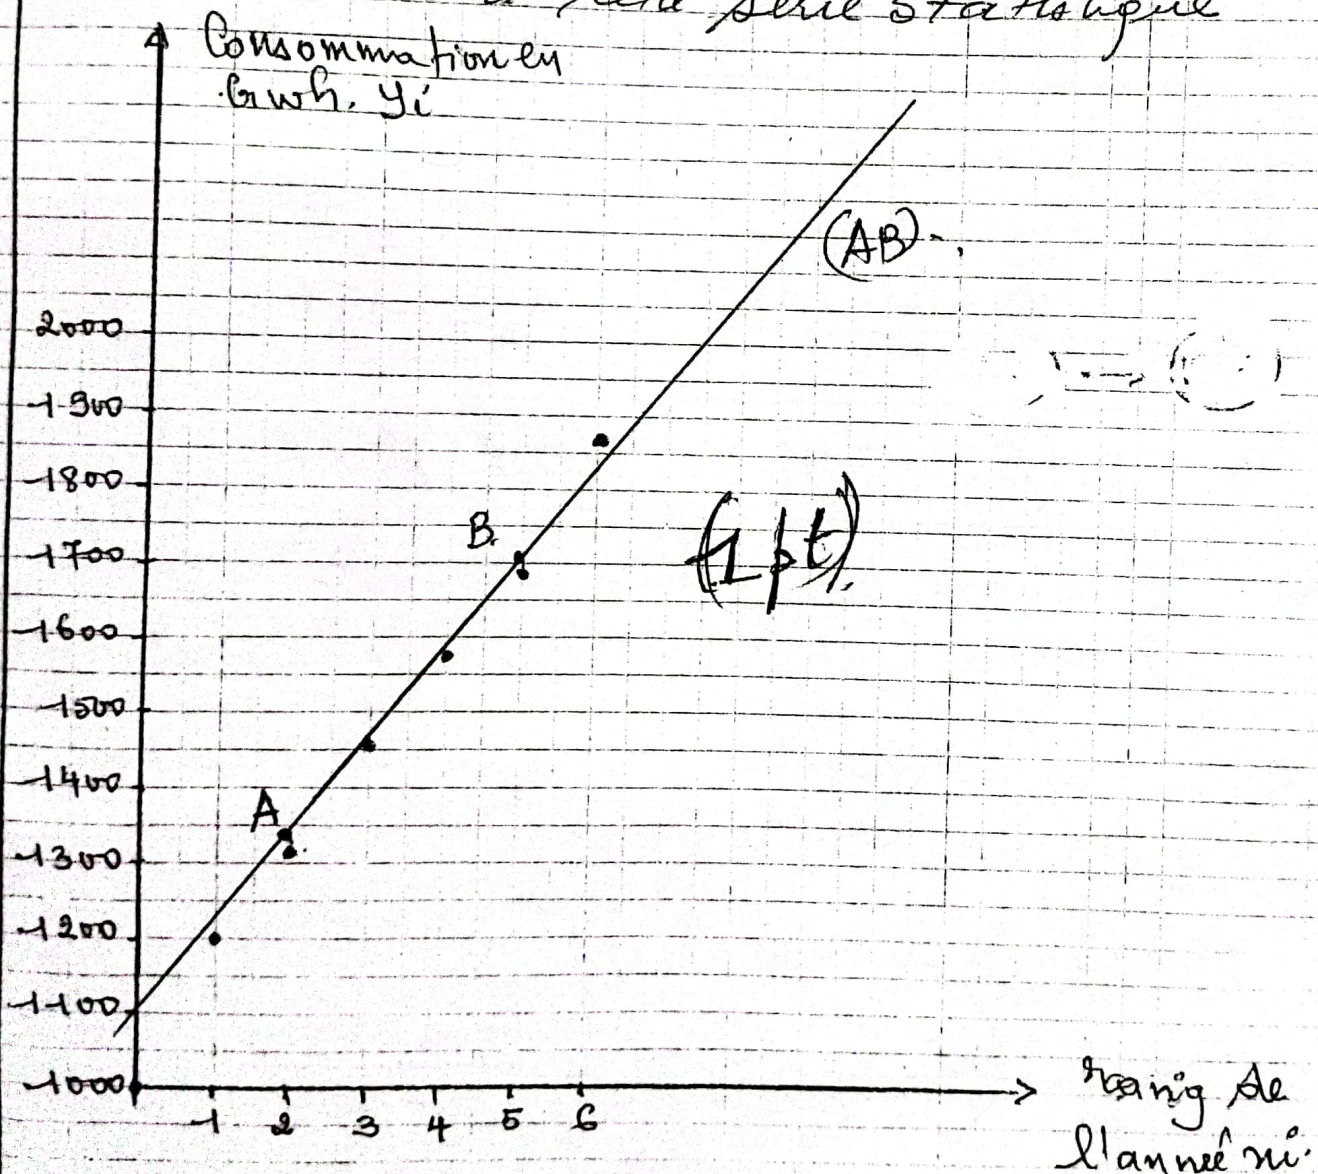 série statistique
Consommation en
Gwh. yi
(AB)
2000
1900
1800
B
1700
(1pt).
1600
1500
1400
A
1300
1200
1100
1000
1 2 3 4 5 6
rang de
l'année xi.